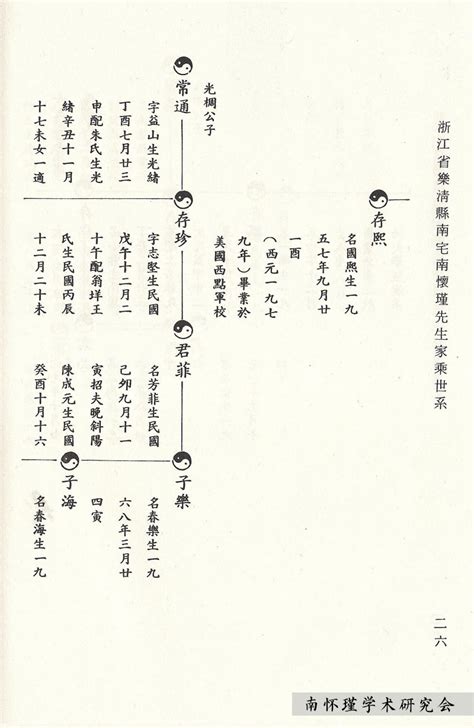 浙江省樂清縣南宅南懷瑾先生家乘世系
二六
存熙
名國熙生一九
五七年九月廿
一酉
（西元一九七
九年）畢業於
美國西點軍校
光椆公子
常通
字益山生光緒
丁酉七月廿三
申配朱氏生光
緒辛丑十一月
十七未女一適
存珍
字志堅生民國
戊午十二月二
十午配翁垟王
氏生民國丙辰
十二月二十未
君菲
名芳菲生民國
己卯九月十一
寅招夫晚斜陽
陳成元生民國
癸酉十月十六
子樂
名春樂生一九
六八年三月廿
四寅
子海
名春海生一九
南怀瑾学术研究会